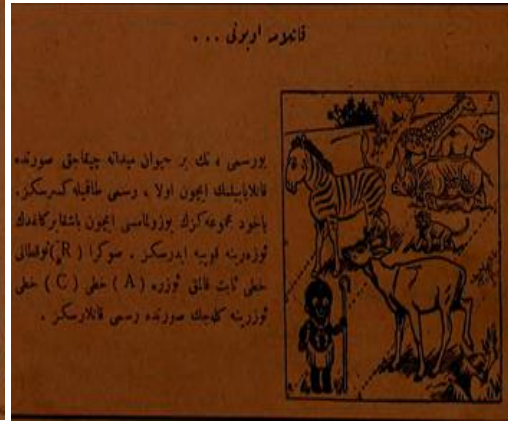 قاتلامه اويونى . . .
بورسمى ، تك بر حيوان ميدانه چيقاجق صورتده
قاتلايابيلمك ايچون اولا ، رسمى طاقيله كسرسكز.
ياخود مجموعه كزك بوزولمامسى ايچون باشقا بر كاغدك
ئوزه‌رينه قوپيه ايدرسكز . صوكرا ( R ) نوقطه‌لى
خطى ثابت قالمق ئوزره ( A ) خطى ( C ) خطى
ئوزرينه كله‌جك صورتده رسمى قاتلارسكز .